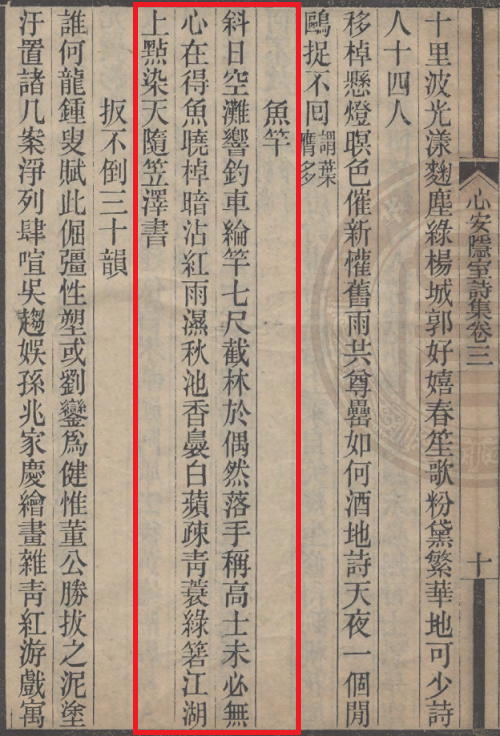 心安隱室詩集卷三 十
十里波光漾麴塵綠楊城郭好嬉春笙歌粉黛繁華地可少詩
人十四人
移棹懸燈暝色催新懽舊雨共尊罍如何酒地詩天夜一個閒
鷗捉不囘謂葉膺多
魚竿
斜日空灘響釣車綸竿七尺截林於偶然落手稱高士未必無
心在得魚曉棹暗沾紅雨濕秋池香裊白蘋疎靑蓑綠箬江湖
上點染天隨笠澤書
扳不倒三十韻
誰何龍鍾叟賦此倔彊性塑或劉鑾爲健惟董公勝拔之泥塗
汙置諸几案淨列肆喧吳趨娛孫兆家慶繪畫雜靑紅游戲寓